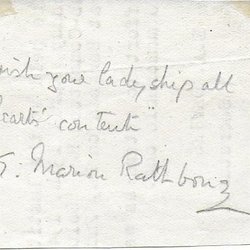 wish your ladyship all
hearts' content"
G: Marion Rathbone